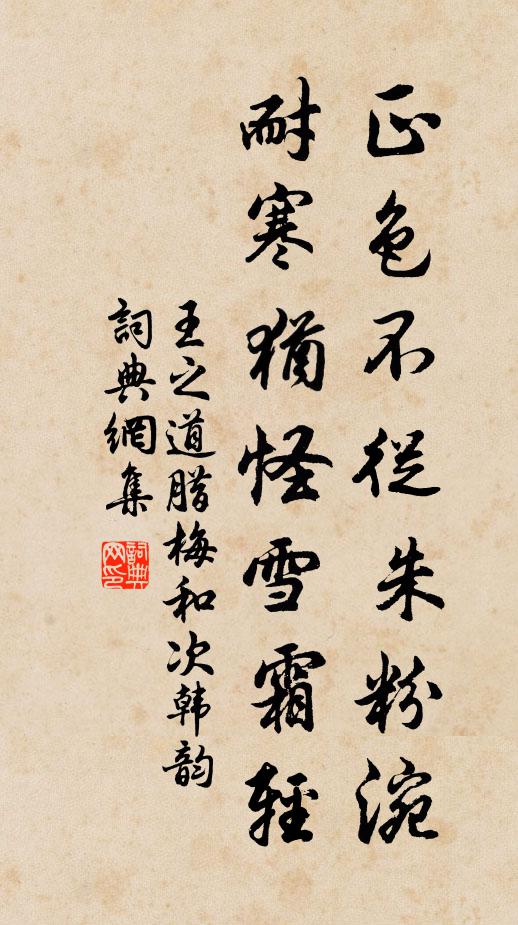 正色不從朱粉涴
耐寒猶怪雪霜輕
王之道腊梅和次韩韵
詞典網集
詞典網印